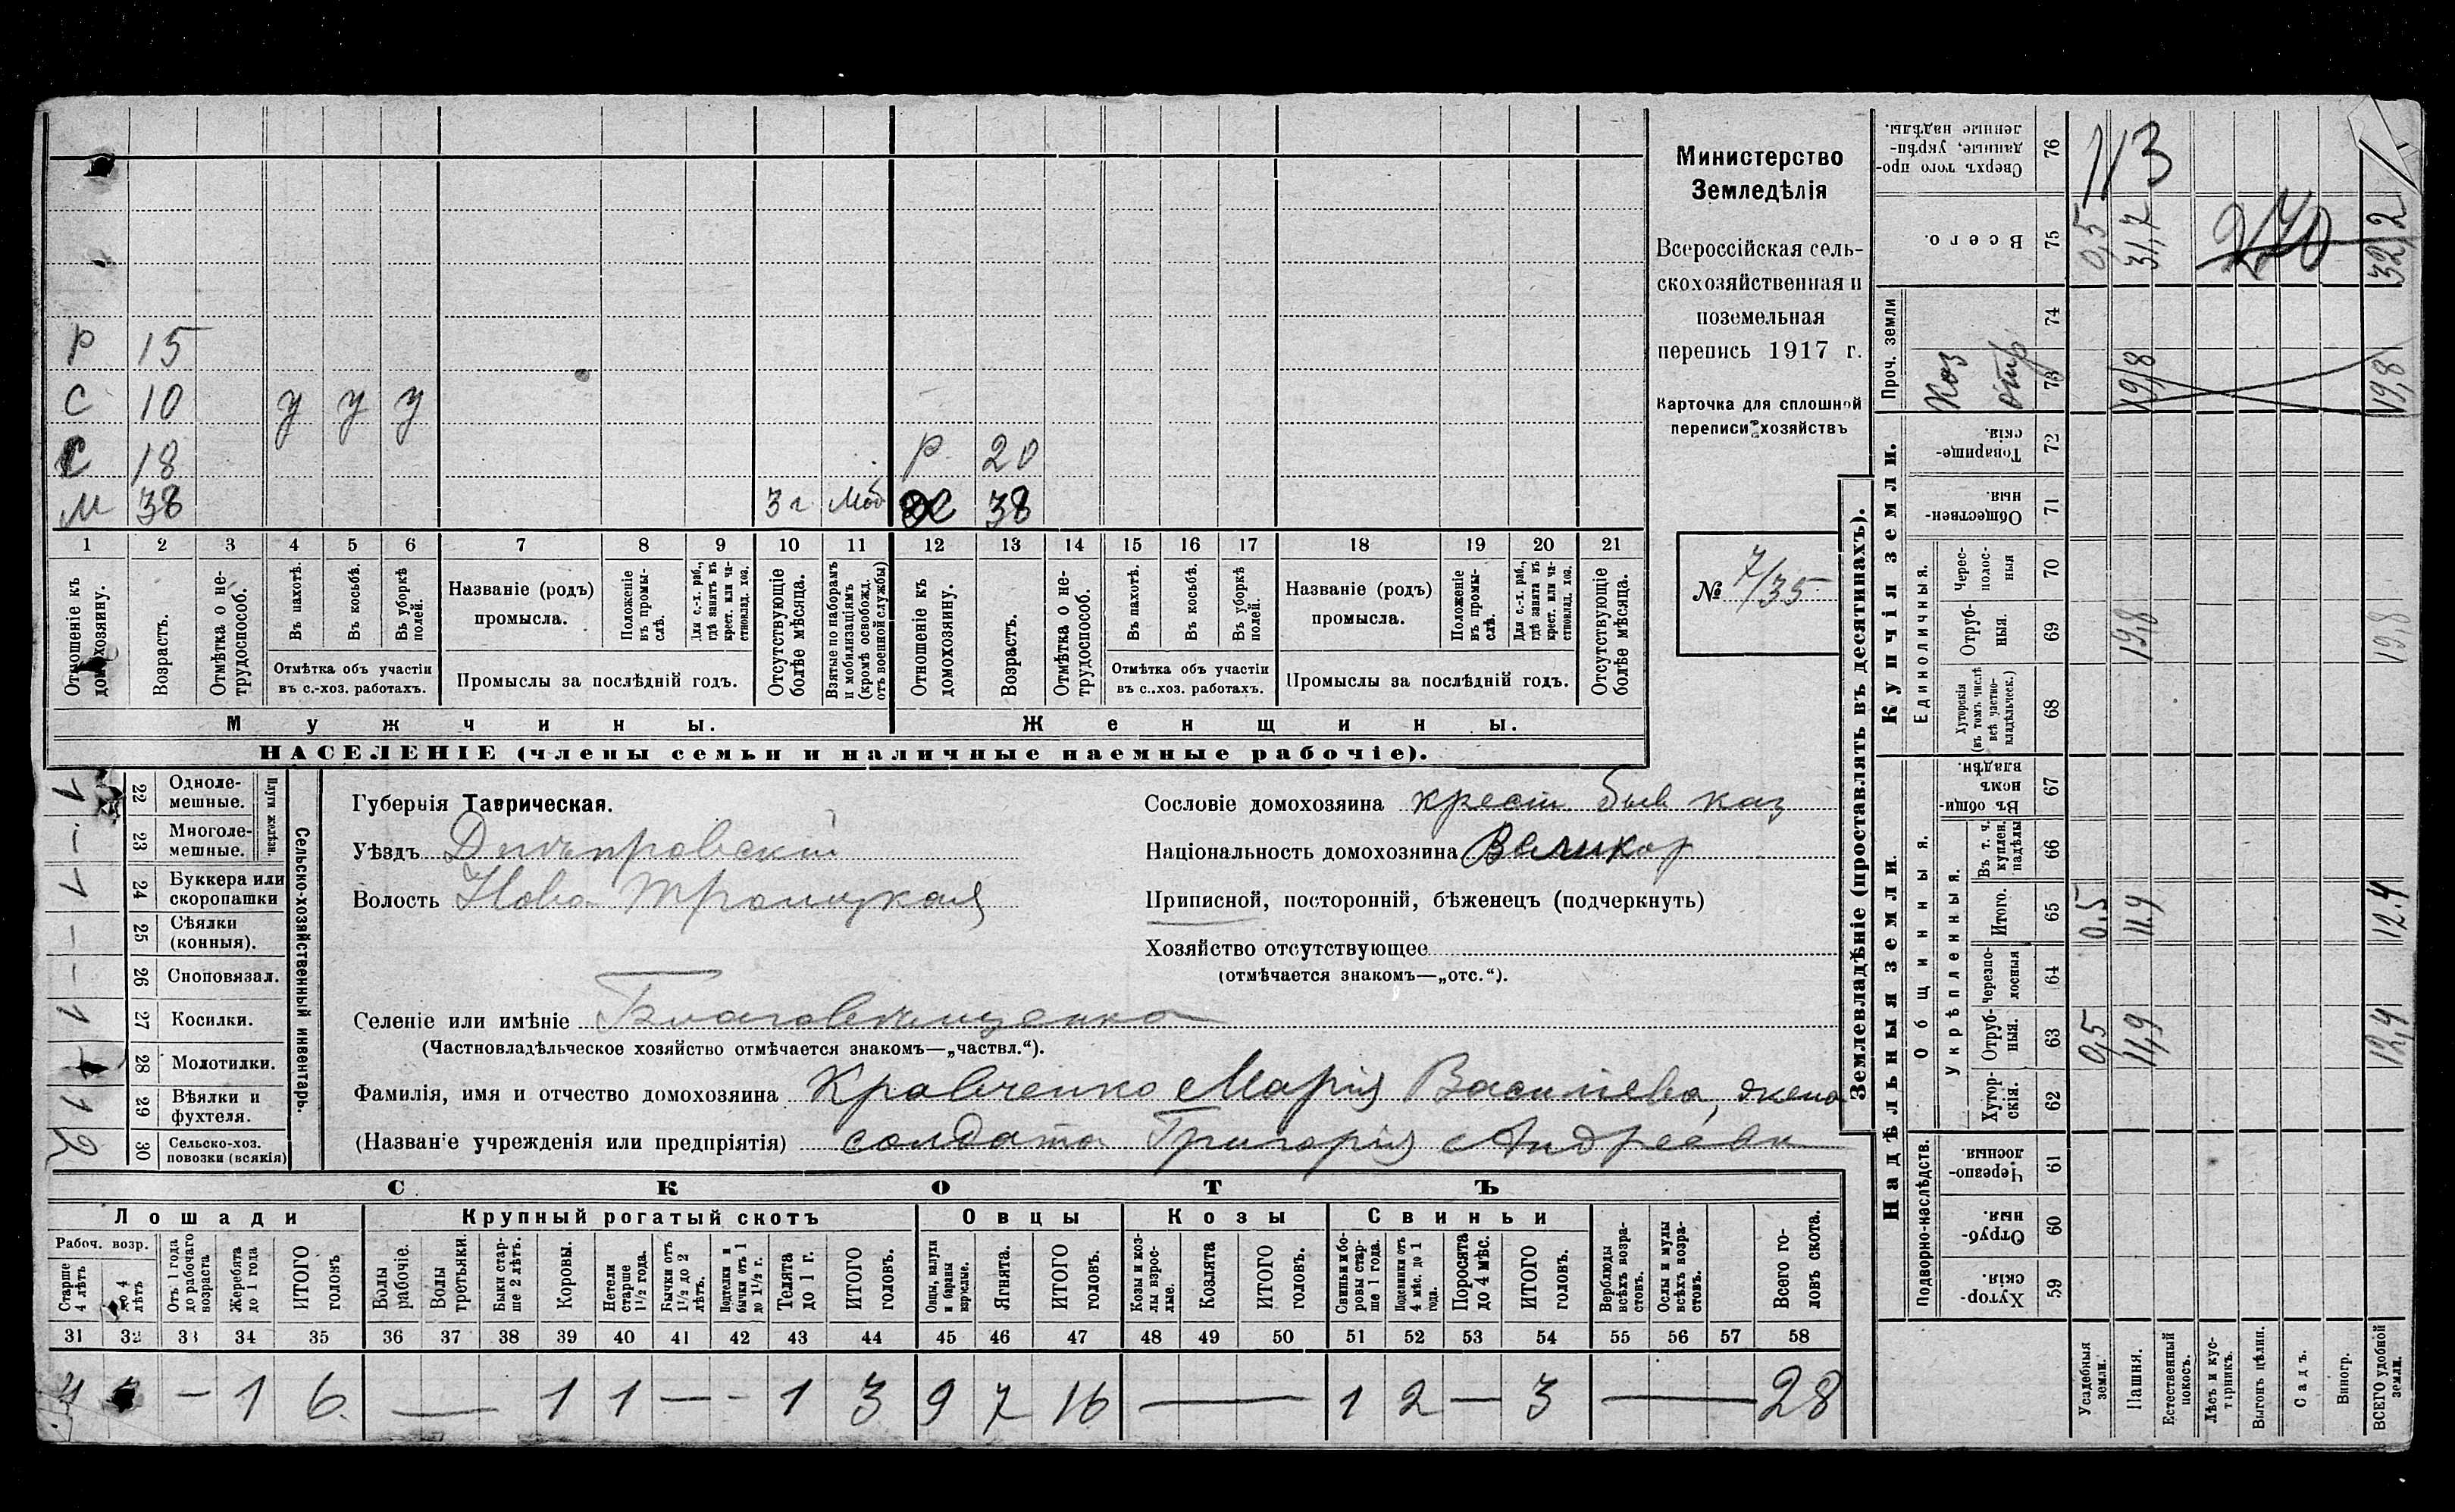 Р 15
С 10 у у у
С 18 Р 20
М 38 3 г Моб Ж 38
1 2 3 4 5 6 7 8 9 10 11 12 13 14 15 16 17 18 19 20 21
Отношеніе къ домохозяину.
Возрастъ.
Отмѣтка о не-
трудоспособ.
Въ пахотѣ.
Въ косьбѣ.
Въ уборкѣ
полей.
Отмѣтка объ участіи
въ с.-хоз. работахъ.
Названіе (родъ)
промысла.
Положеніе
въ промы-
слѣ.
Для с.-х. раб.,
гдѣ занятъ въ
крест. или ча-
стновлад. хоз.
Промыслы за послѣдній годъ.
Отсутствующіе
болѣе мѣсяца.
Взятые по наборамъ
и мобилизаціямъ
(кромѣ освобожд.
отъ военной службы)
Отношеніе къ
домохозяину.
Возрастъ.
Отмѣтка о не-
трудоспособ.
Въ пахотѣ.
Въ косьбѣ.
Въ уборкѣ
полей.
Отмѣтка объ участіи
въ с.-хоз. работахъ.
Названіе (родъ)
промысла.
Положеніе
въ промы-
слѣ.
Для с.-х. раб.,
гдѣ занятъ въ
крест. или ча-
стновлад. хоз.
Промыслы за послѣдній годъ.
Отсутствующіе
болѣе мѣсяца.
Мужчины.
Женщины.
НАСЕЛЕНІЕ (члены семьи и наличные наемные рабочіе).
Министерство
Земледѣлія
Всероссійская сель-
скохозяйственная и
поземельная
перепись 1917 г.
Карточка для сплошной
переписи хозяйствъ
№ 7/35
1 22 Одноле-
мешные.
— 23 Многоле-
мешные.
Плуги желѣзн.
1 24 Буккера или
скоропашки
— 25 Сѣялки
(конныя).
— 26 Сноповязал.
1 27 Косилки.
28 Молотилки.
1 29 Вѣялки и
фухтеля.
2 30 Сельско-хоз.
повозки (всякія)
Сельско-хозяйственный инвентарь.
Губернія Таврическая.
Уѣздъ Днѣпровскій
Волость Ново Троицкая
Селеніе или имѣніе Благовѣщенка
(Частновладѣльческое хозяйство отмѣчается знакомъ—„частвл.“).
Фамилія, имя и отчество домохозяина Кравченко Марія Василіева, жена
(Названіе учрежденія или предпріятія) солдата Григорія Андреева
Сословіе домохозяина крест. быв каз
Національность домохозяина Великор
Приписной, посторонній, бѣженецъ (подчеркнуть)
Хозяйство отсутствующее
(отмѣчается знакомъ—„отс.“).
СКОТЪ
Лошади
Крупный рогатый скотъ
Овцы
Козы
Свиньи
Рабоч. возр.
Старше
4 лѣтъ
до 4
лѣтъ
Отъ 1 года
до рабочаго
возраста
Жеребята
до 1 года
ИТОГО
головъ
Волы
рабочіе.
Волы
третьяки.
Быки стар-
ше 2 лѣтъ.
Коровы.
Нетели
старше
1½ года.
Бычки отъ
1½ до 2
лѣтъ.
Подтелки и
бычки отъ 1
до 1½ г.
Телята
до 1 г.
ИТОГО
головъ.
Овцы, валухи
и бараны
взрослые.
Ягнята.
ИТОГО
головъ.
Козы и коз-
лы взрос-
лые.
Козлята
ИТОГО
головъ.
Свиньи и бо-
ровы стар-
ше 1 года.
Подсвинки отъ
4 мѣс. до 1
года.
Поросята
до 4 мѣс.
ИТОГО
головъ.
Верблюды
всѣхъ возра-
стовъ.
Ослы и мулы
всѣхъ возра-
стовъ.
Всего го-
ловъ скота.
31 32 33 34 35 36 37 38 39 40 41 42 43 44 45 46 47 48 49 50 51 52 53 54 55 56 57 58
4 — 1 6 — 1 1 — — 1 3 9 7 16 — 1 2 — 3 — 28
Землевладѣніе (проставлять въ десятинахъ).
Надѣльныя земли.
Купчія земли.
Проч. земли
Подворно-наслѣдств.
Общинныя.
Укрѣпленныя.
Единоличныя.
Сверхъ того про-
данные, укрѣп-
ленные надѣлы.
76 113
Всего.
75 0,5 31,7 270 32,2
74
Каз
отр
73 19,8 19,8
Товарище-
скія.
72
Обществен-
ныя.
71
Черес-
полос-
ныя
70
Отруб-
ныя.
69 19,8 19,8
Хуторскія
(въ томъ числѣ
всѣ частно-
владѣльческ.)
68
Въ общи-
номъ
владѣн.
67
Въ т. ч.
куплен.
надѣлы
66
Итого.
65 0,5 11.9 12.4
Черезпо-
лосныя
64
Отруб-
ныя.
63 0,5 11,9 12,4
Хутор-
скія.
62
Черезпо-
лосныя.
61
Отруб-
ныя.
60
Хутор-
скія.
59
Усадебныя
земли.
Пашня.
Естественный
покосъ.
Лѣсъ и кус-
тарникъ.
Выгонъ цѣлин.
Садъ.
Виногр.
ВСЕГО удобной
земли.